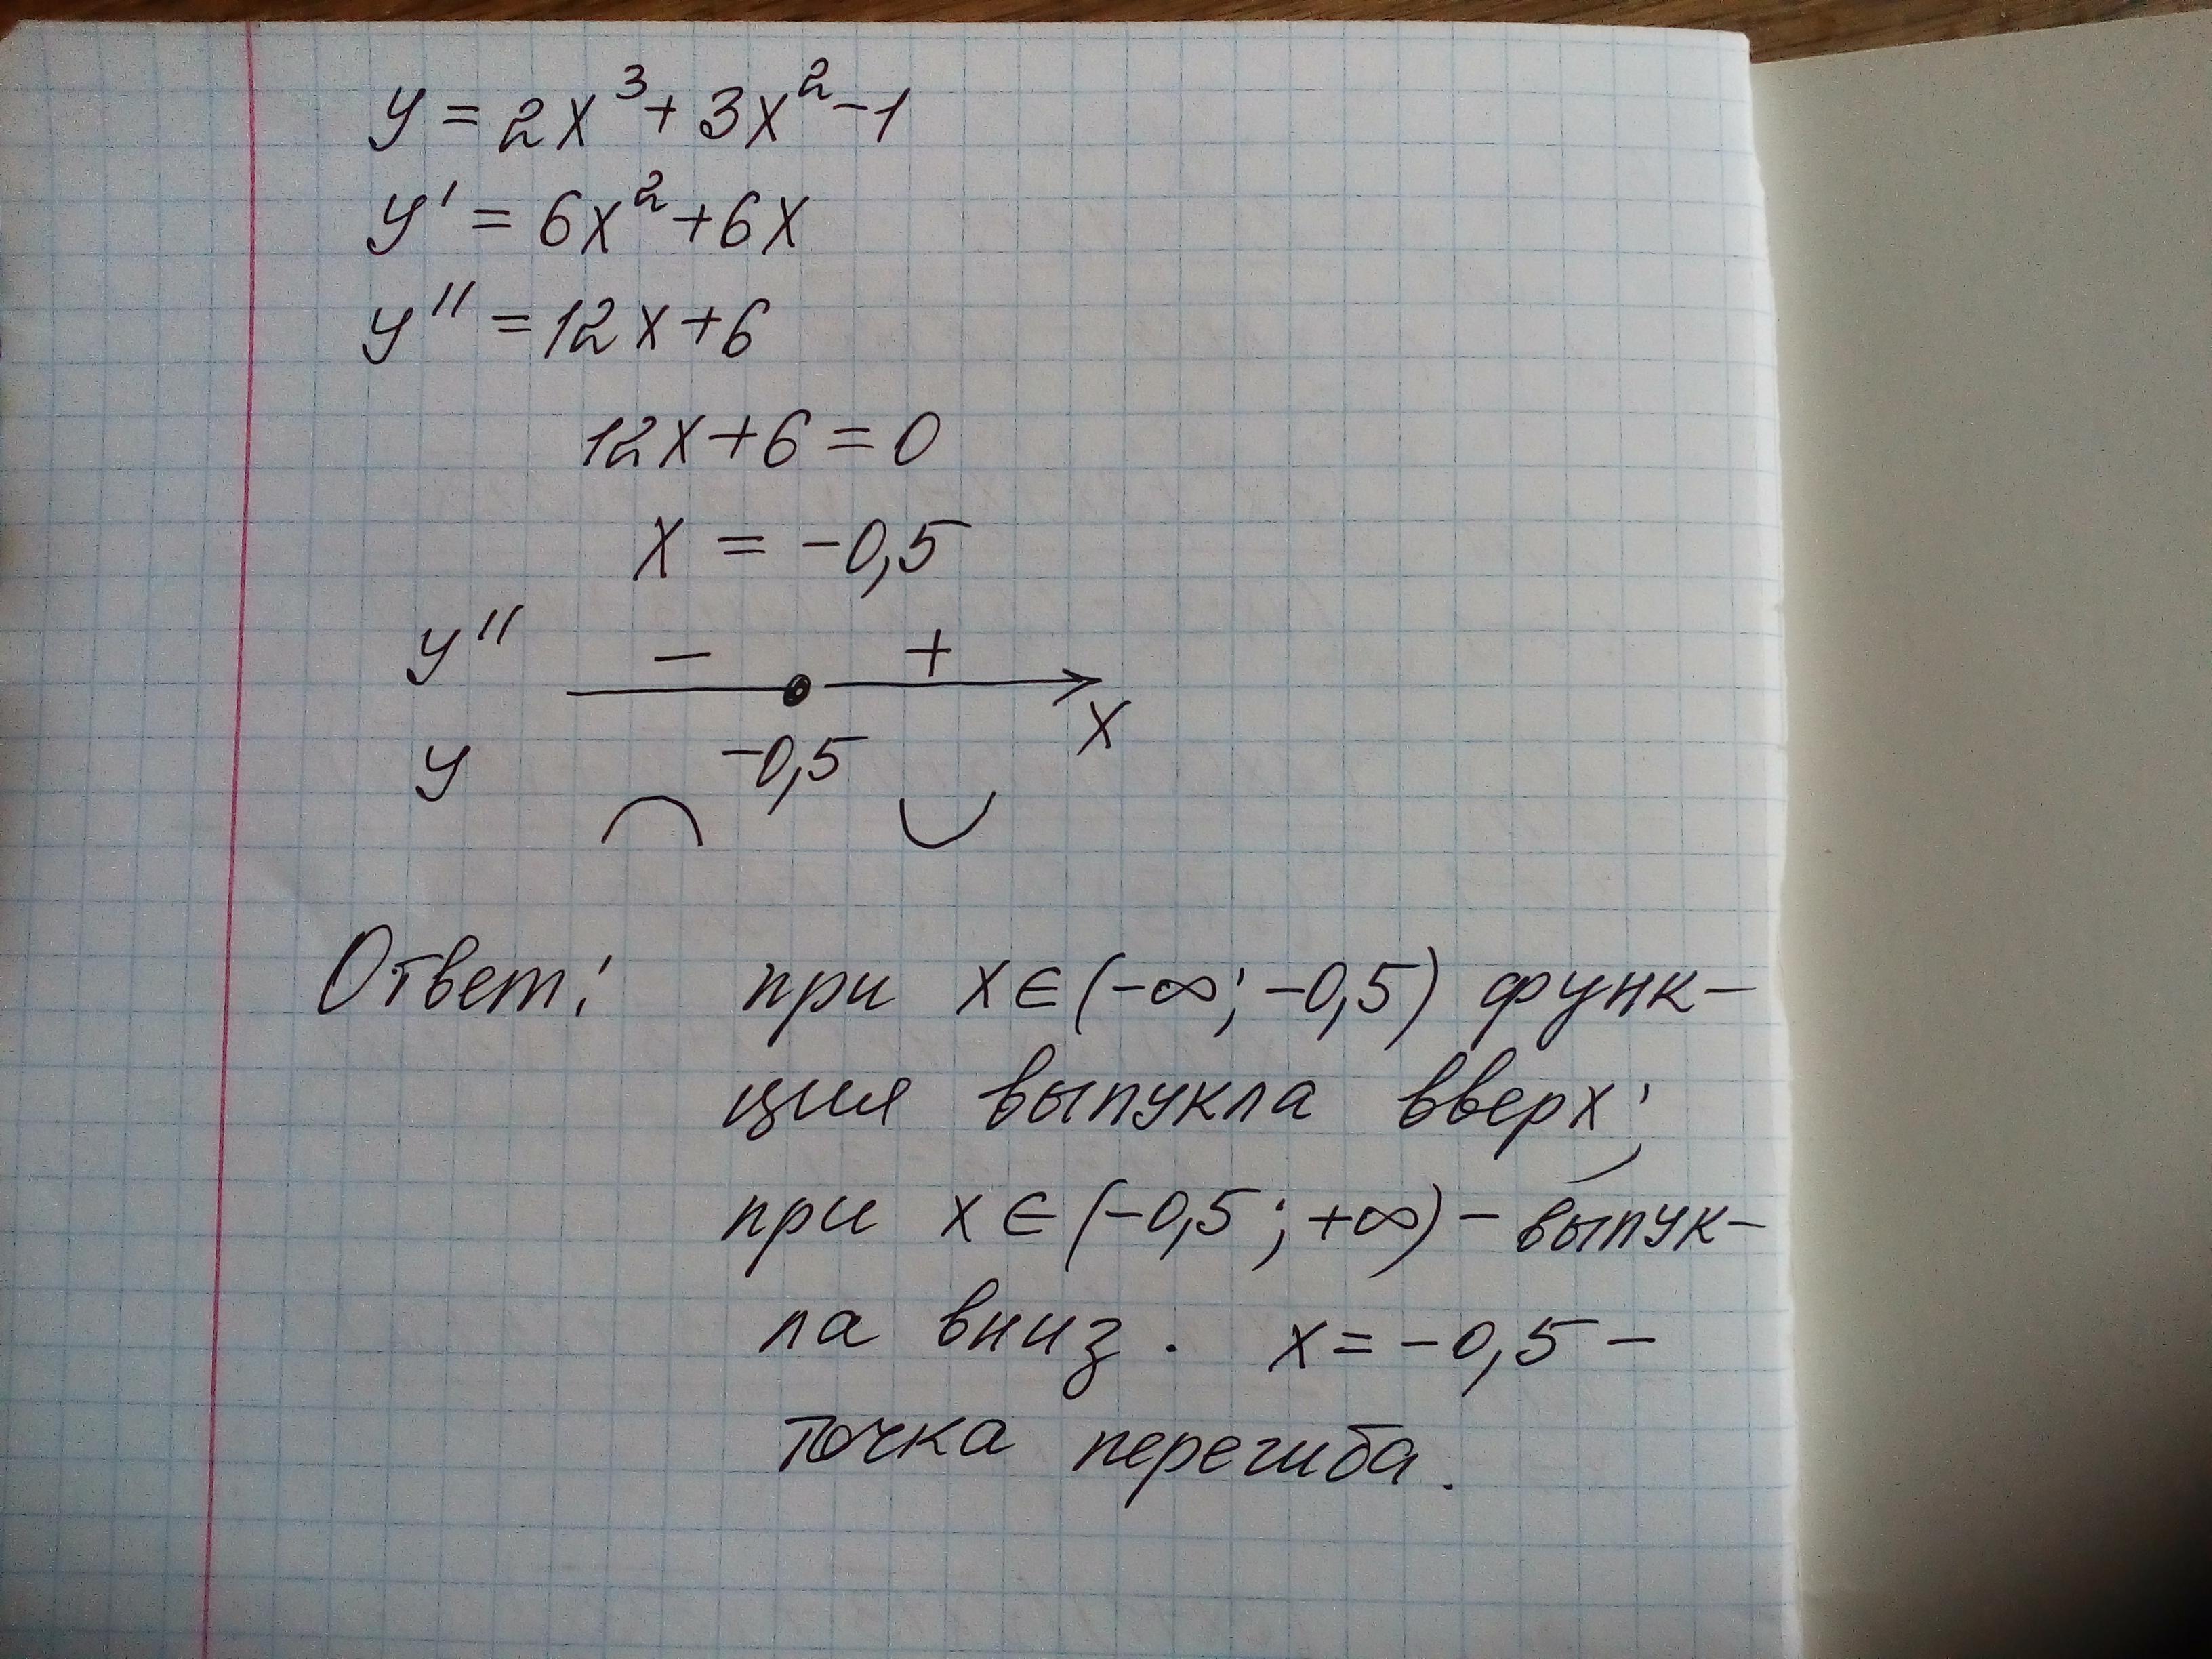 y = 2x³ + 3x² - 1
y' = 6x² + 6x
y'' = 12x + 6
12x + 6 = 0
x = -0,5
y'' - +
x
y -0,5
Ответ: при x ∈ (-∞; -0,5) функ-
ция выпукла вверх;
при x ∈ (-0,5; +∞) - выпук-
ла вниз. x = -0,5 -
точка перегиба.